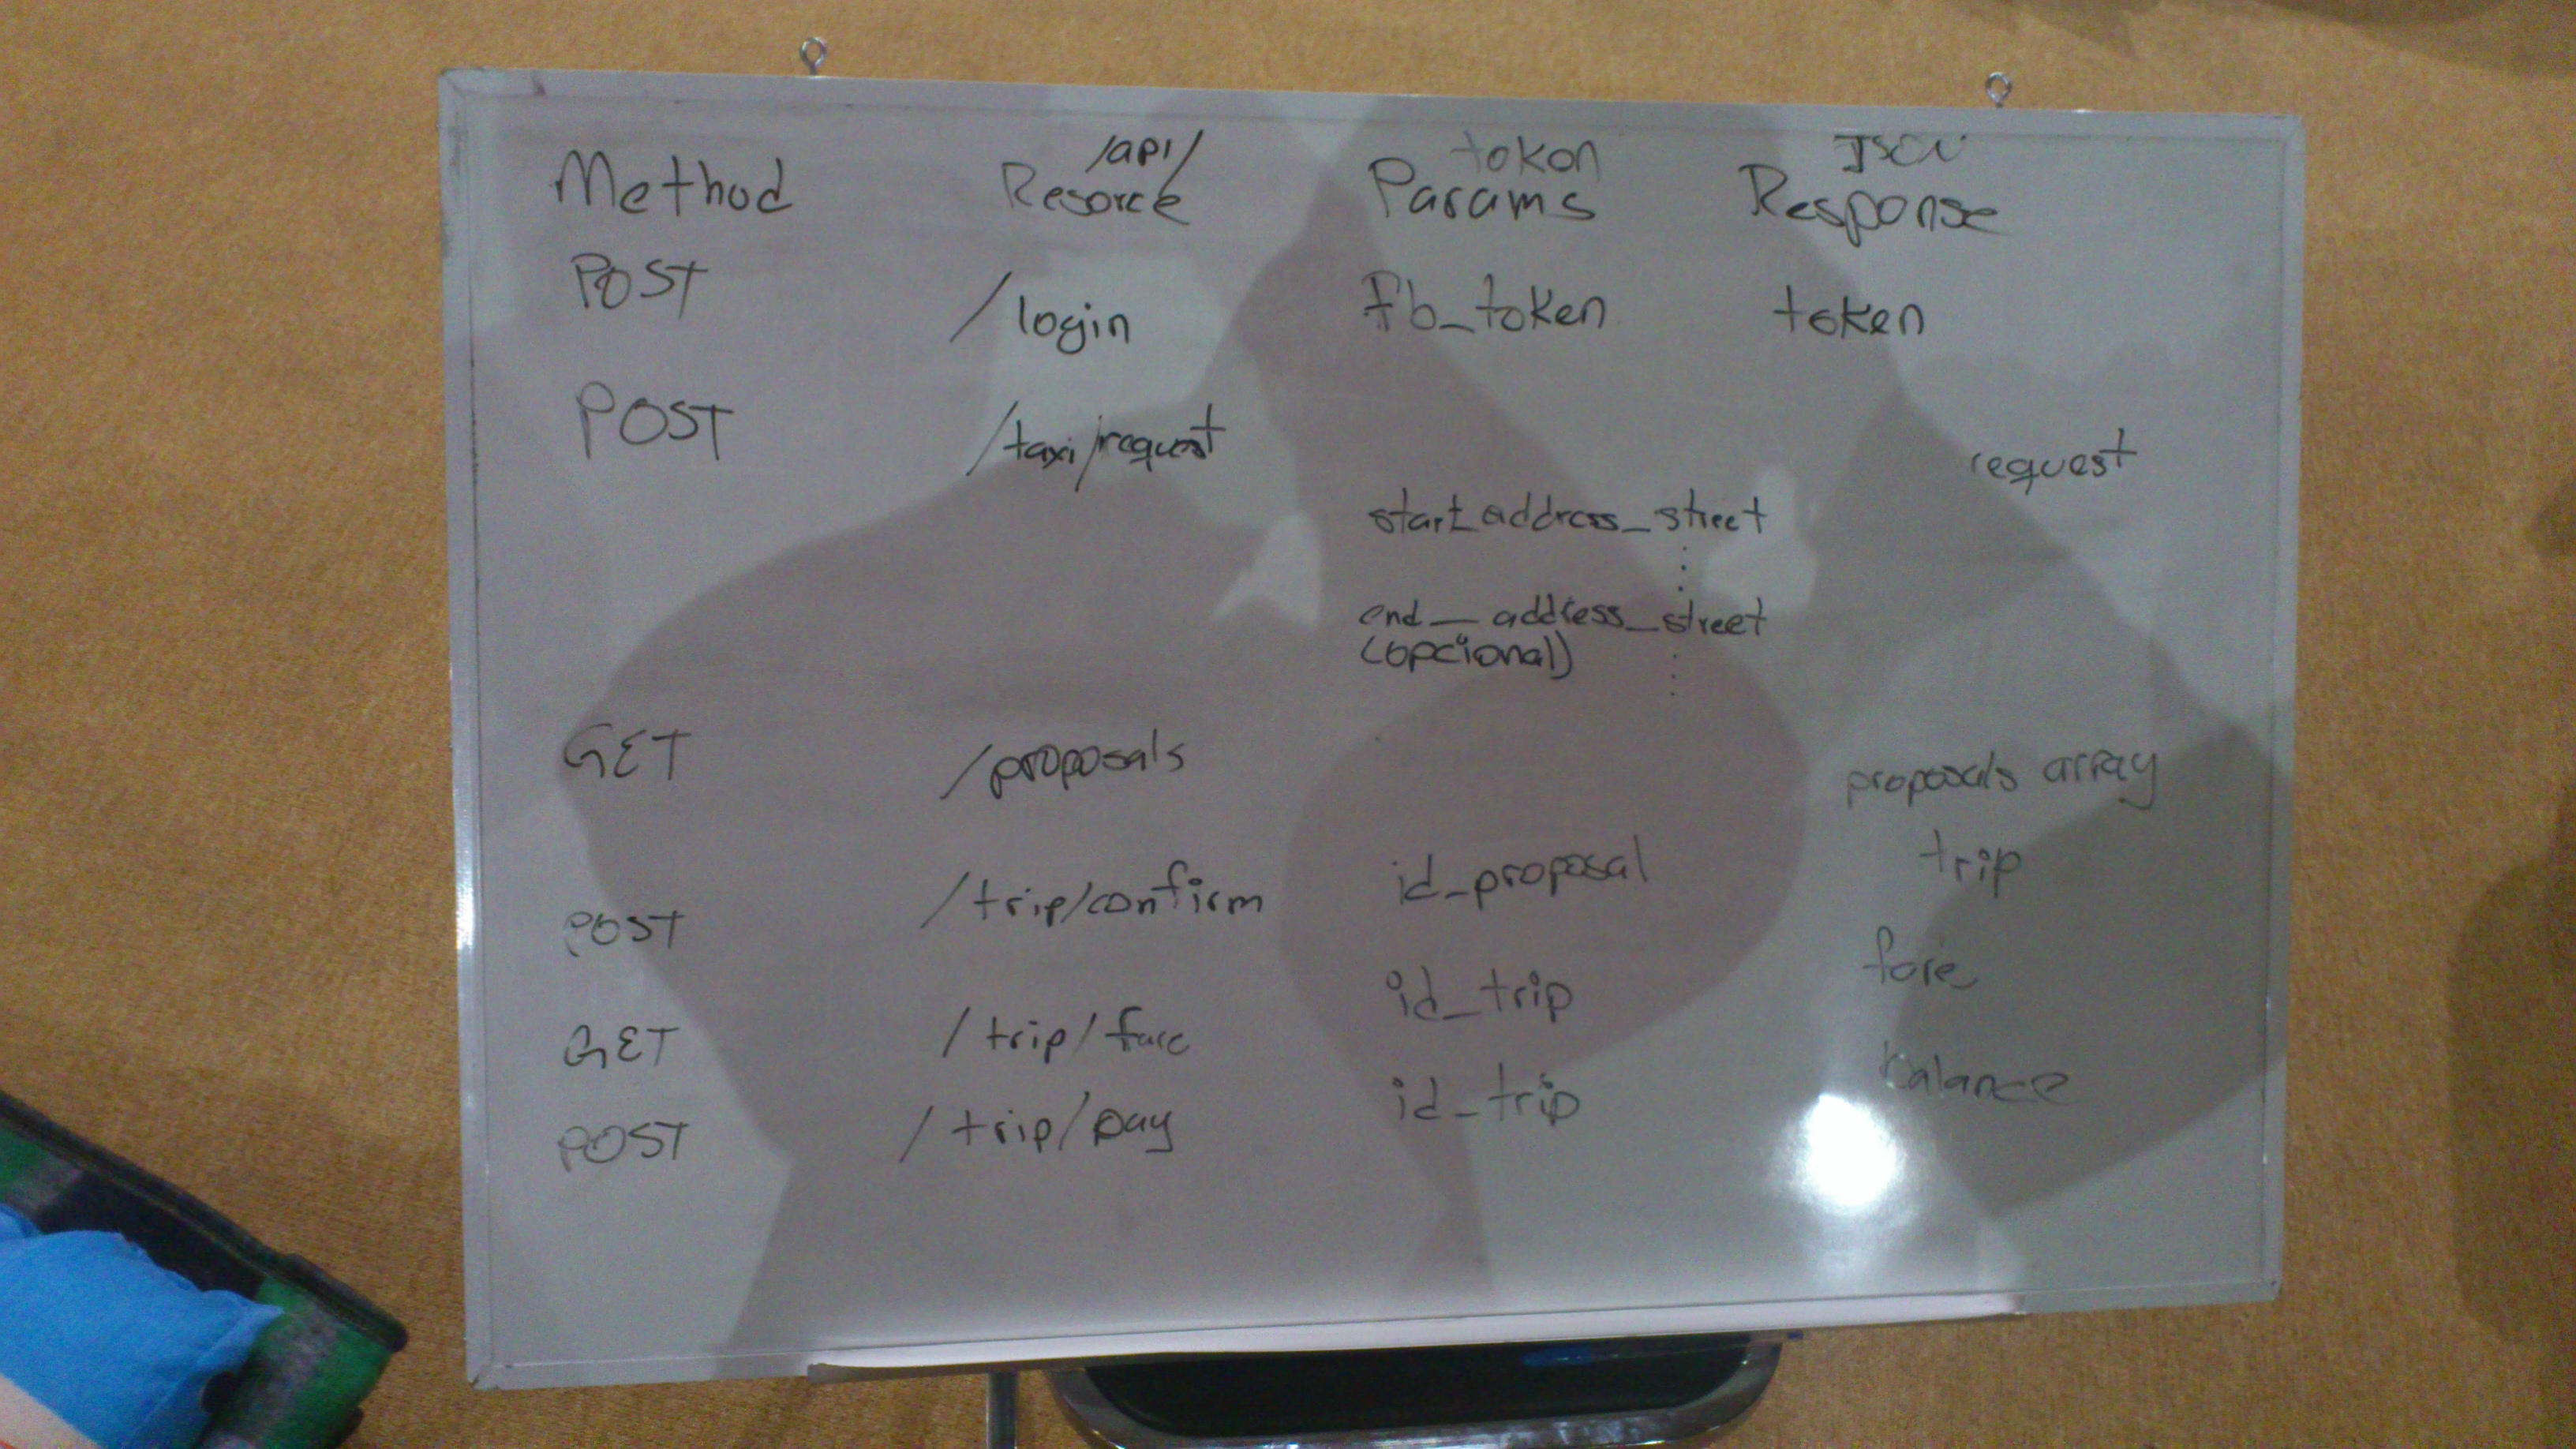 /api/ token JSON
Method Resorce Params Response
POST /login fb_token token
POST /taxi/request request
start_address_street
end_address_street
(opcional)
GET /proposals proposals array
POST /trip/confirm id_proposal trip
GET /trip/fare id_trip fare
POST /trip/pay id_trip balance